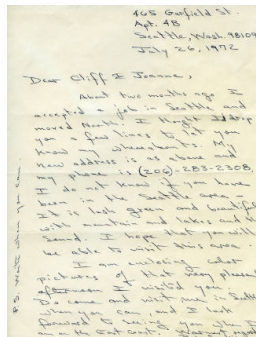 465 Garfield St.
Apt. 4B
Seattle, Wash. 98109
July 26, 1972
Dear Cliff & Joanne,
About two months ago I
accepted a job in Seattle and
moved North. I thought I'd drop
you a few lines to let you
know my whereabouts. My
new address is as above and
my phone is (206)-283-2308.
I do not know if you have
been in the Seattle area.
It is lush green and beautiful
with mountain and lakes and the
Sound. I hope that you will
be able to visit this area.
I am enclosing color
pictures of that very pleasant
afternoon I visited you.
Do come and visit me in Seattle
when you can, and I look
forward to seeing you when I
am on the East Coast.
P.S. Write when you can.